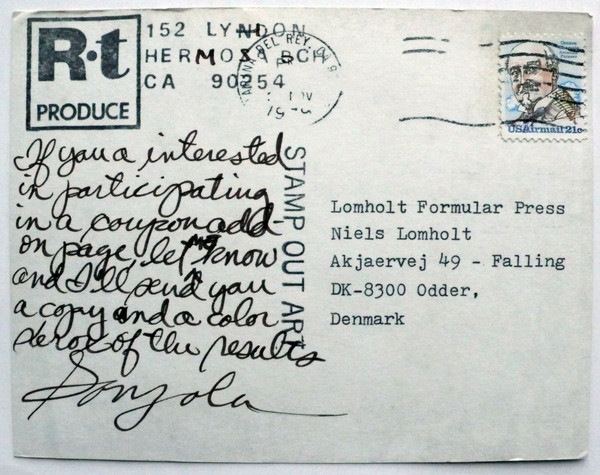 R·t
PRODUCE
152 LYNDON
HERMOSA BCH
CA 90254
MARINA DEL REY, CA
PM
USAirmail 21c
If you a interested
in participating
in a coupon add
on page, let me know
and I'll send you
a copy and a color
xerox of the results
STAMP OUT ART
Lomholt Formular Press
Niels Lomholt
Akjaervej 49 - Falling
DK-8300 Odder,
Denmark